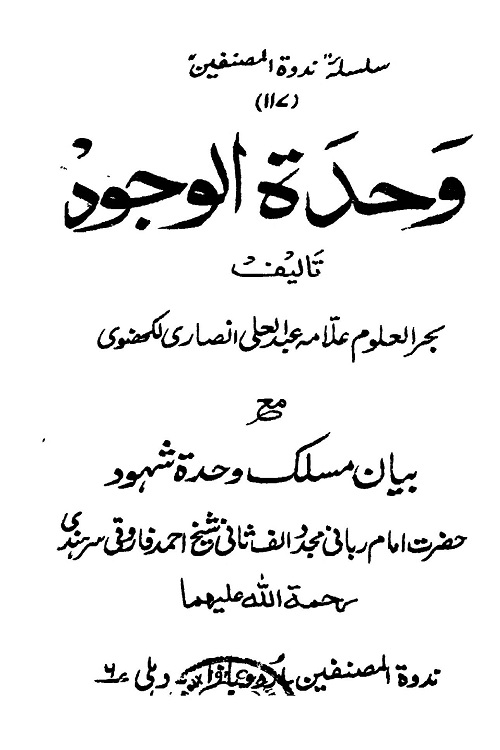 سلسلۂ ندوۃ المصنفین
(۱۱۷)
وَحدَۃ الوجود
تالیف
بحر العلوم علّامہ عبد العلی انصاری لکھنوی
مع
بیان مسلک وحدۃ شہود
حضرت امام ربانی مجدد الف ثانی شیخ احمد فاروقی سرہندی
رحمۃ اللہ علیہما
ندوۃ المصنفین اردو بازار دہلی ۶